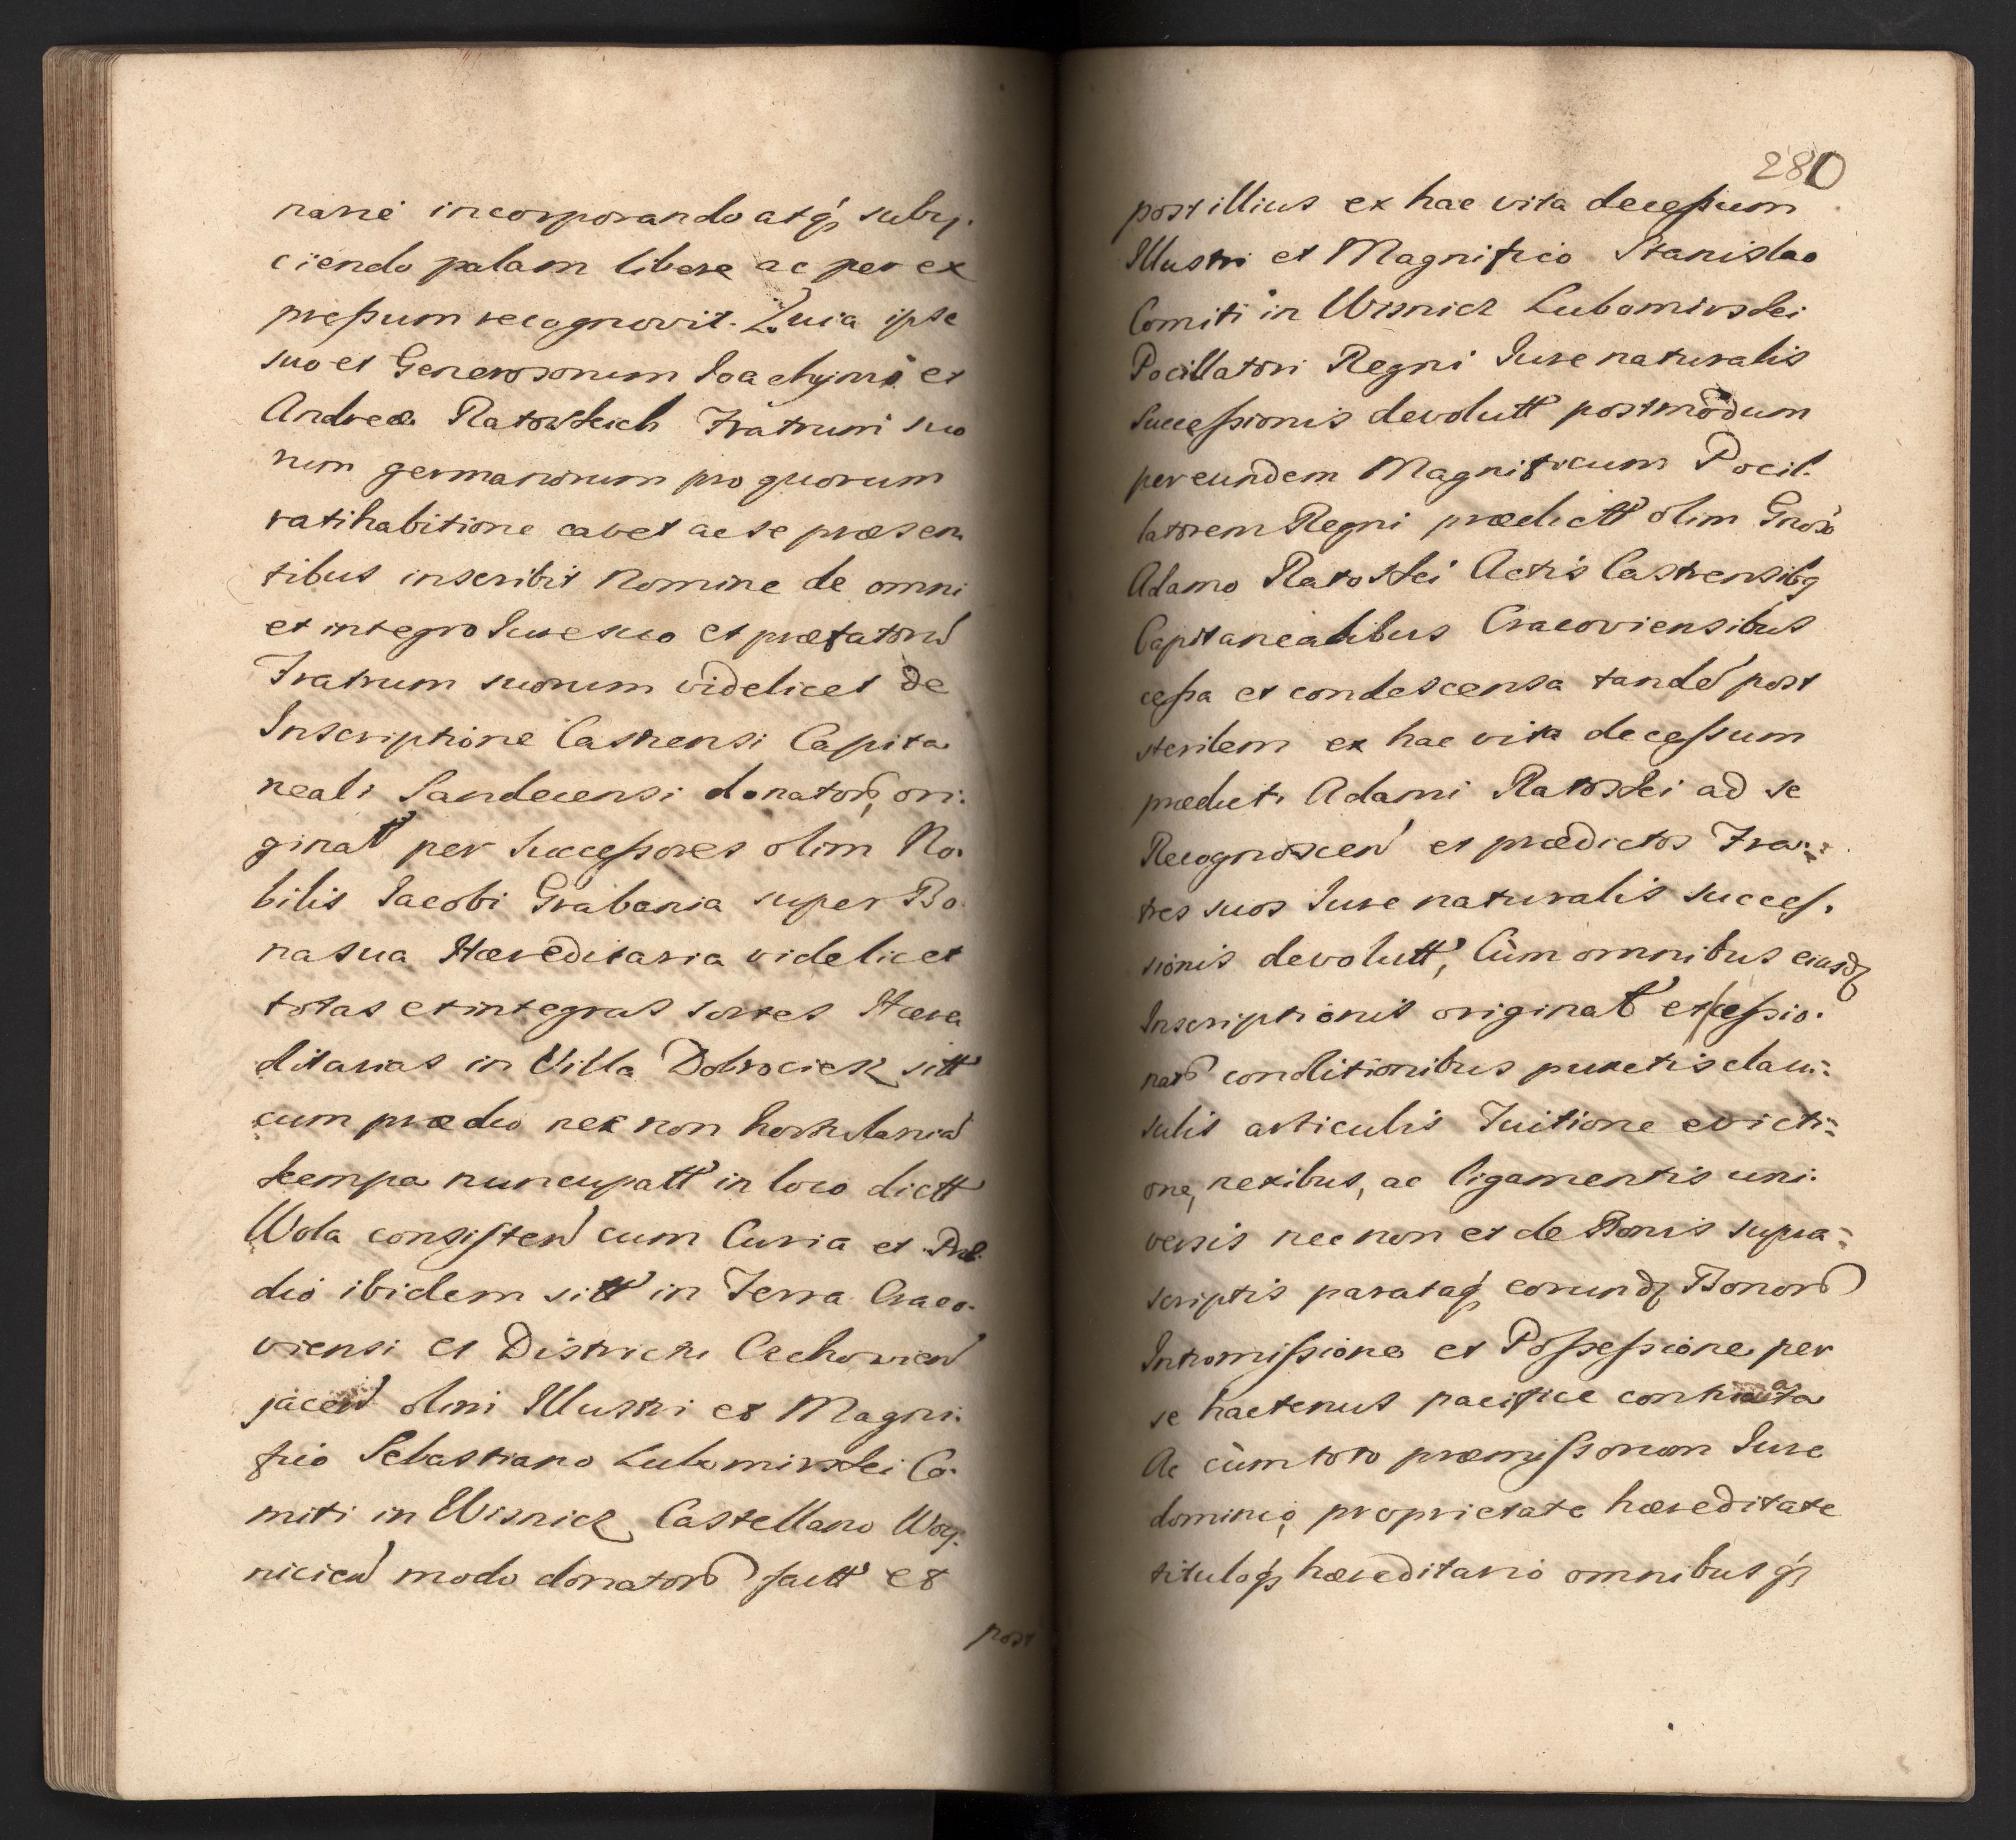 narie incorporando atq́ subij.
ciendo palam libere ac per ex
preſsum recognovit. Quia ipse
suo et Generosorum Joachimi et
Andreæ Ratowskich Fratrum suo
rum germanorum pro quorum
ratihabitione cavet ac se præsen
tibus inscribit Nomine de omni
et integro Jure suo et præfatorũ
Fratrum suorum videlicet de
Inscriptione Castrensi Capita
neali Sandecensi donator, ori.
ginat per Succeſsores olim No.
bilis Jacobi Grabania super Bo
na sua Hæreditaria videlicet
totas et integras sortes Hære
ditarias in Villa Dobrociesz sitt
cum prædio nec non hortulania
kempa nuncupatt in loco dictt
Wola consiſten cum Curia et Præ
dio ibidem sitt in Terra Craco.
viensi et Districtu Cechovien
jacen olim Illustri et Magni.
fico Sebastiano Lubomirski Co.
miti in Wisnicz Castellano Woy.
nicien modo donator factt et
post
280
post illius ex hac vita deceſsum
Illustri et Magnifico Stanislao
Comiti in Wisnicz Lubomirski
Pocillatori Regni Jure naturalis
Succeſsionis devolutt postmodum
per eundem Magnificum Pocil.
latorem Regni prædictt olim Gnoso
Adamo Ratoski Actis Castrensibq
Capitanealibus Cracoviensibus
ceſsa et condescensa tandẽ post
sterilem ex hac vita deceſsum
prædicti Adami Ratoski ad se
Recognoscen et prædictos Fra:
tres suos Jure naturalis succeſ.
sionis devolutt, Cùm omnibus eiusdq
Inscriptionis originat et ceſsio.
nar conditionibus punctis clau:
sulis articulis Tuitione evicti:
one, nexibus, ac ligamentis uni.
versis nec non et de Bonis supra:
scriptis parataq́ eorundq Bonor
Intromiſsione et Poſseſsione per
se hactenus pacifice
Ac cùm toto præmiſsorum Jure
dominio, proprietate hæreditate
tituloq́ hæreditario omnibus q́